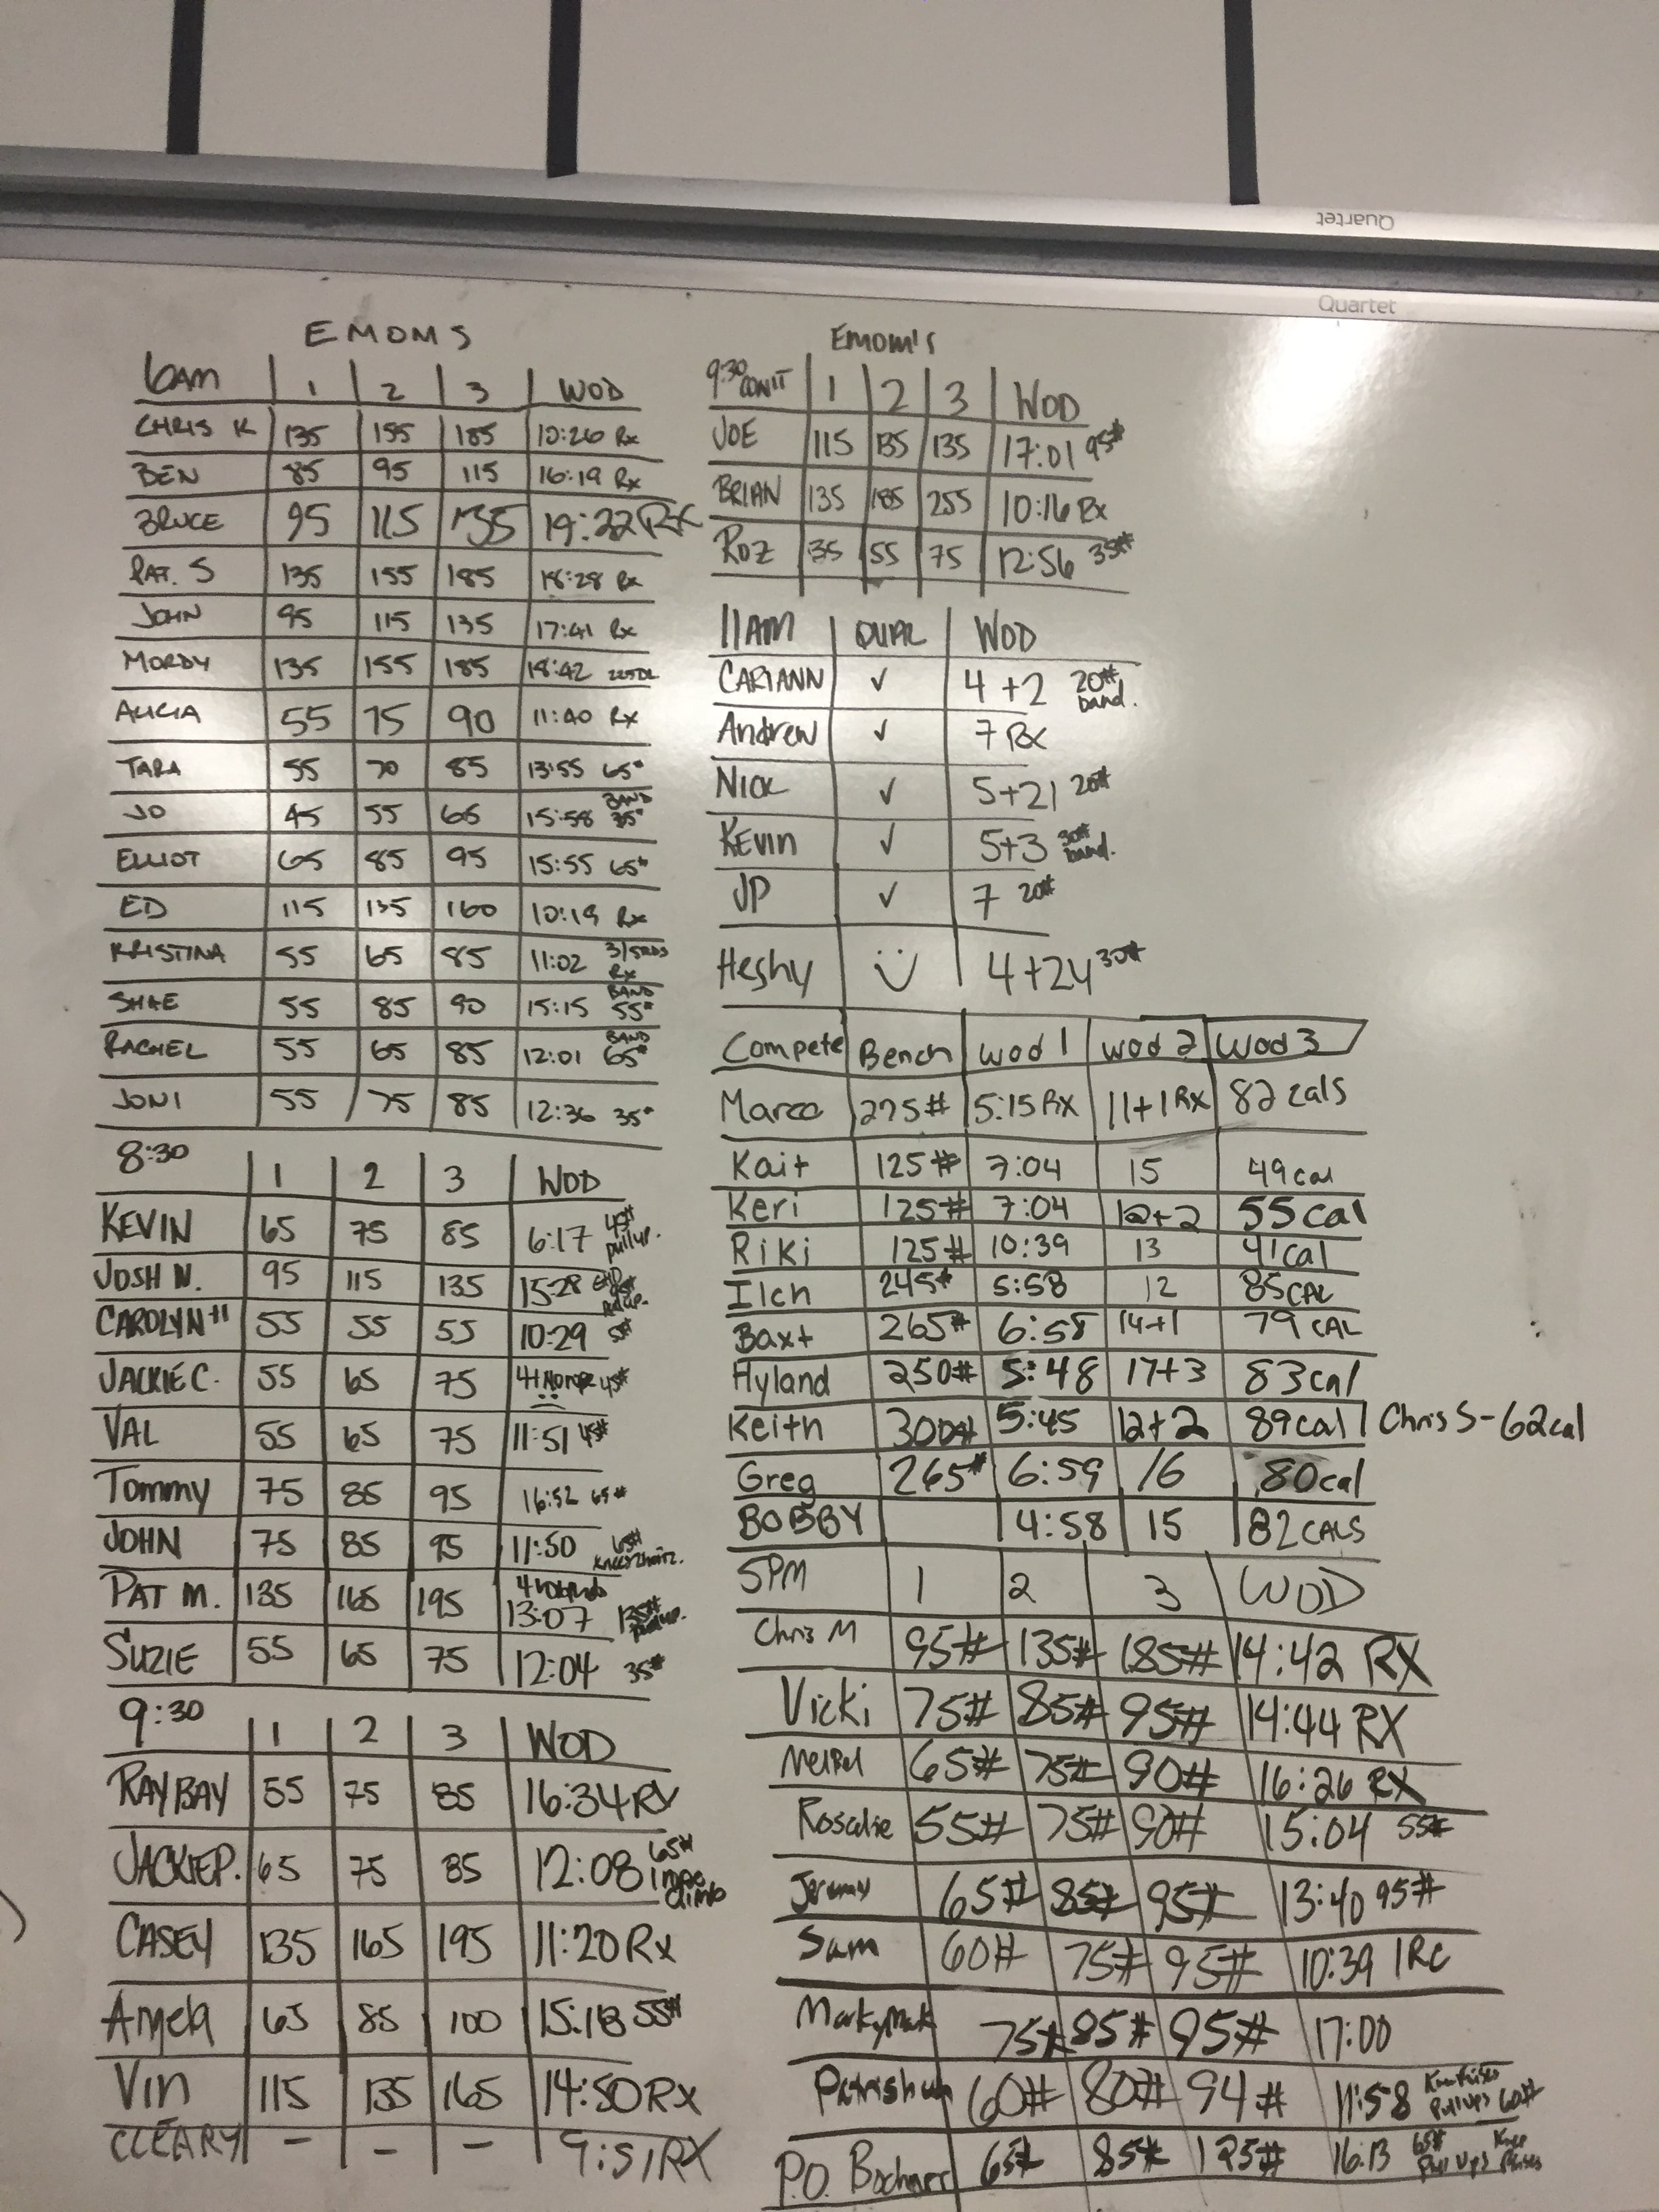 Quartet
EMOMS
6AM 1 2 3 WOD
CHRIS K 135 155 185 10:26 Rx
BEN 85 95 115 16:19 Rx
BRUCE 95 115 135 19:22 Rx
PAT. S 135 155 185 18:28 Rx
JOHN 95 115 135 17:41 Rx
MORDY 135 155 185 18:42 225DL
ALICIA 55 75 90 11:40 Rx
TARA 55 70 85 13:55 65#
JO 45 55 65 15:58 BAND 35#
ELLIOT 65 85 95 15:55 65#
ED 115 135 160 10:19 Rx
KRISTINA 55 65 85 11:02 3/5RDS Rx
SHAE 55 85 90 15:15 BAND 55#
RACHEL 55 65 85 12:01 BAND 65#
JONI 55 75 85 12:36 35#
8:30 1 2 3 WOD
KEVIN 65 75 85 6:17 45# pullup.
JOSH N. 95 115 135 15:28
CAROLYN 55 55 55 10:29
JACKIE C. 55 65 75 45#
VAL 55 65 75 11:51 45#
Tommy 75 85 95 16:52 65#
JOHN 75 85 95 11:50 65#
PAT M. 135 165 195 13:07 135# pullup.
SUZIE 55 65 75 12:04 35#
9:30 1 2 3 WOD
RAYBAY 55 75 85 16:34 RX
JACKIE P. 65 75 85 12:08 65# 1 rope climb
CASEY 135 165 195 11:20 Rx
Angela 65 85 100 15:18 55#
Vin 115 135 165 14:50 RX
CLEARY - - - 9:51 RX
Emom's
9:30 CON'T 1 2 3 WOD
JOE 115 135 135 17:01 95#
BRIAN 135 185 255 10:16 Rx
ROZ 35 55 75 12:56 35#
11AM QUAL WOD
CARIANN ✓ 4+2 20# band.
Andrew ✓ 7 Rx
NICK ✓ 5+21 20#
KEVIN ✓ 5+3 30# band.
JP ✓ 7 20#
Heshy 4+24 30#
Compete Bench Wod 1 Wod 2 Wod 3
Marco 275# 5:15 RX 11+1 RX 82 cals
Kait 125# 7:04 15 49 cal
Keri 125# 7:04 12+2 55 cal
Riki 125# 10:39 13 41 cal
Ilch 245# 5:58 12 85 CAL
Baxt 265# 6:58 14+1 79 CAL
Hyland 250# 5:48 17+3 83 cal
Keith 300# 5:45 12+2 89 cal Chris S-62cal
Greg 265# 6:59 16 80cal
BOBBY 4:58 15 82 CALS
5PM 1 2 3 WOD
Chris M 95# 135# 185# 14:42 RX
Vicki 75# 85# 95# 14:44 RX
65# 75# 90# 16:26 RX
Rosalie 55# 75# 90# 15:04 55#
Jeremy 65# 85# 95# 13:40 95#
Sam 60# 75# 95# 10:39 1RC
MarkyMark 75# 85# 95# 17:00
60# 80# 94# 11:58 Pull ups 60#
P.O. 65# 85# 125# 16:13 65# Pull Ups Knee Raises